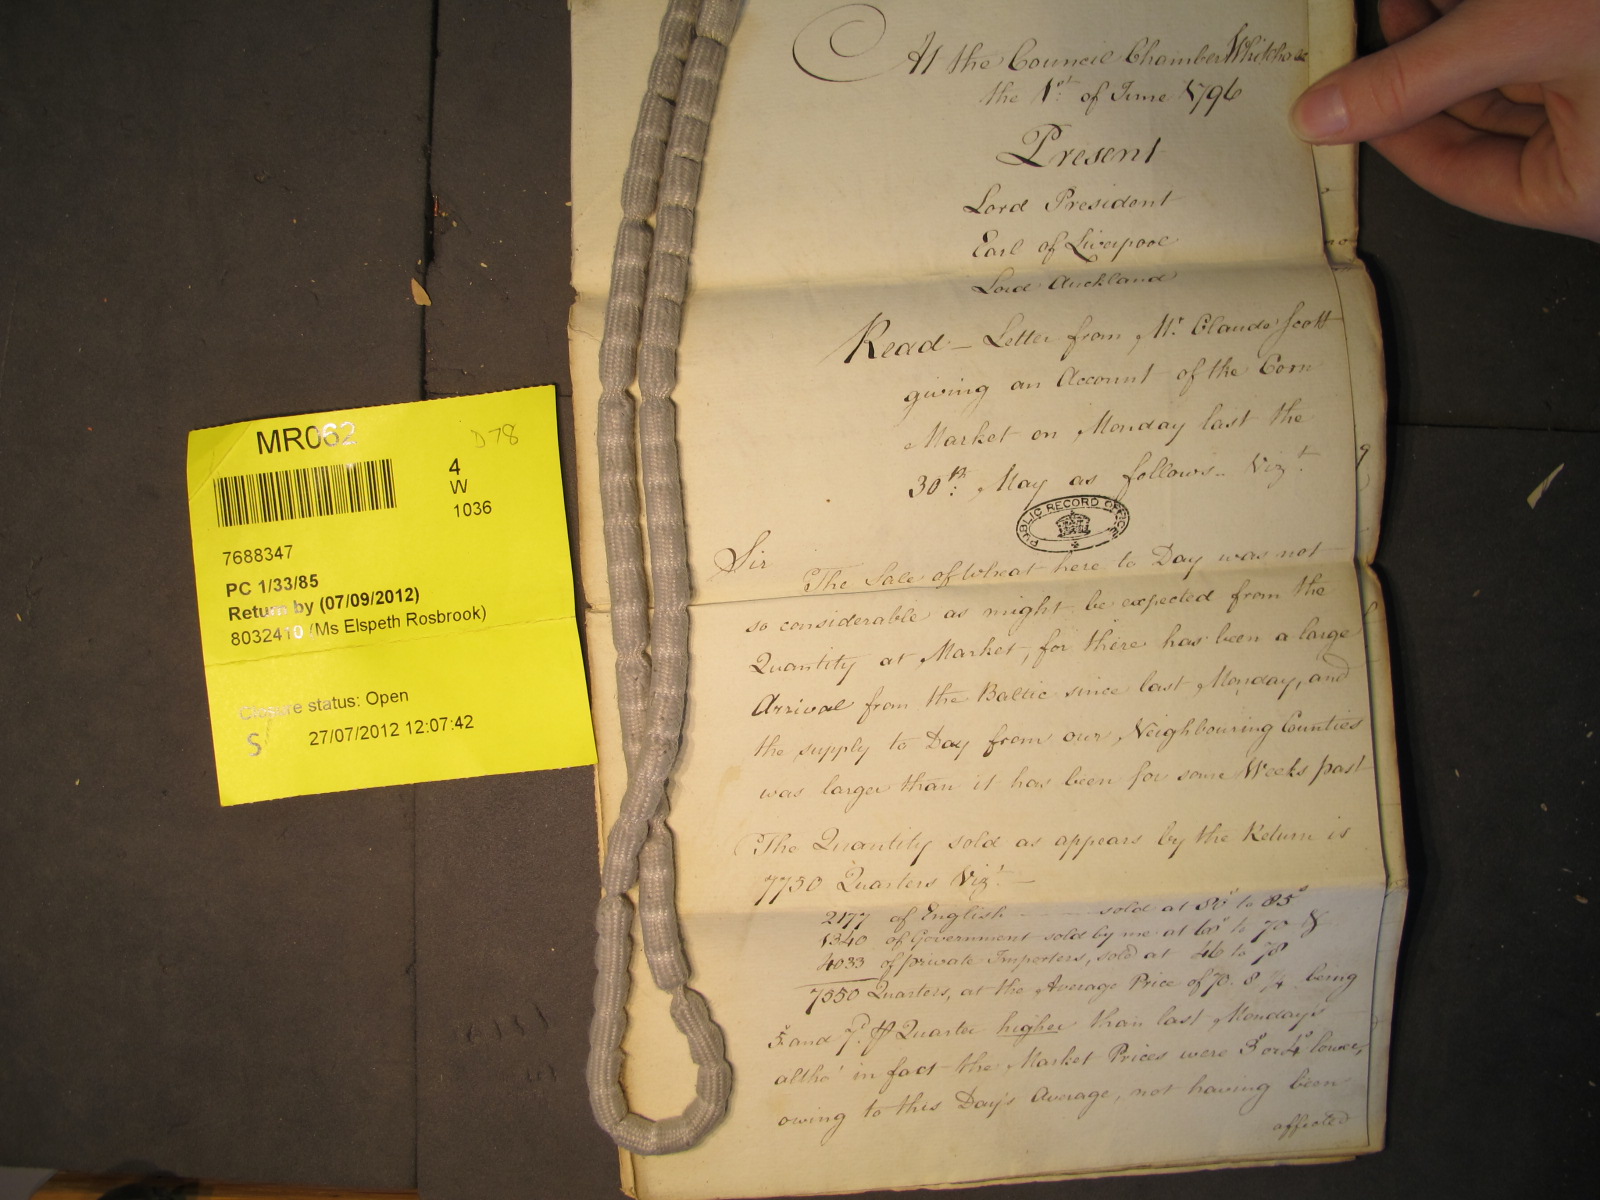 MR062
D78
4
W
1036
7688347
PC 1/33/85
Return by (07/09/2012)
8032410 (Ms Elspeth Rosbrook)
Closure status: Open
S
27/07/2012 12:07:42
At the Council Chamber Whitehall
the 1st of June 1796
Present
Lord President
Earl of Liverpool
Lord Auckland
Read - Letter from Mr. Claude Scott
giving an Account of the Corn
Market on Monday last the
30th: May as follows.. Vizt.
PUBLIC RECORD OFFICE
Sir
The Sale of Wheat here to Day was not
so considerable as might be expected from the
Quantity at Market, for there has been a large
Arrival from the Baltic since last Monday, and
the supply to Day from our Neighbouring Counties
was larger than it has been for some Weeks past
The Quantity sold as appears by the Return is
7750 Quarters Vizt. —
2177 of English - - - sold at to 85s
1340 of Government sold by me at 60s to 70
4033 of private Importers, sold at 46 to 78
7550 Quarters, at the Average Price of 70. 8 1/4 being
5s. and 7d. ⅌ Quarter higher than last Monday's
altho' in fact the Market Prices were 3s or 4s lower,
owing to this Day's Average, not having been
affected